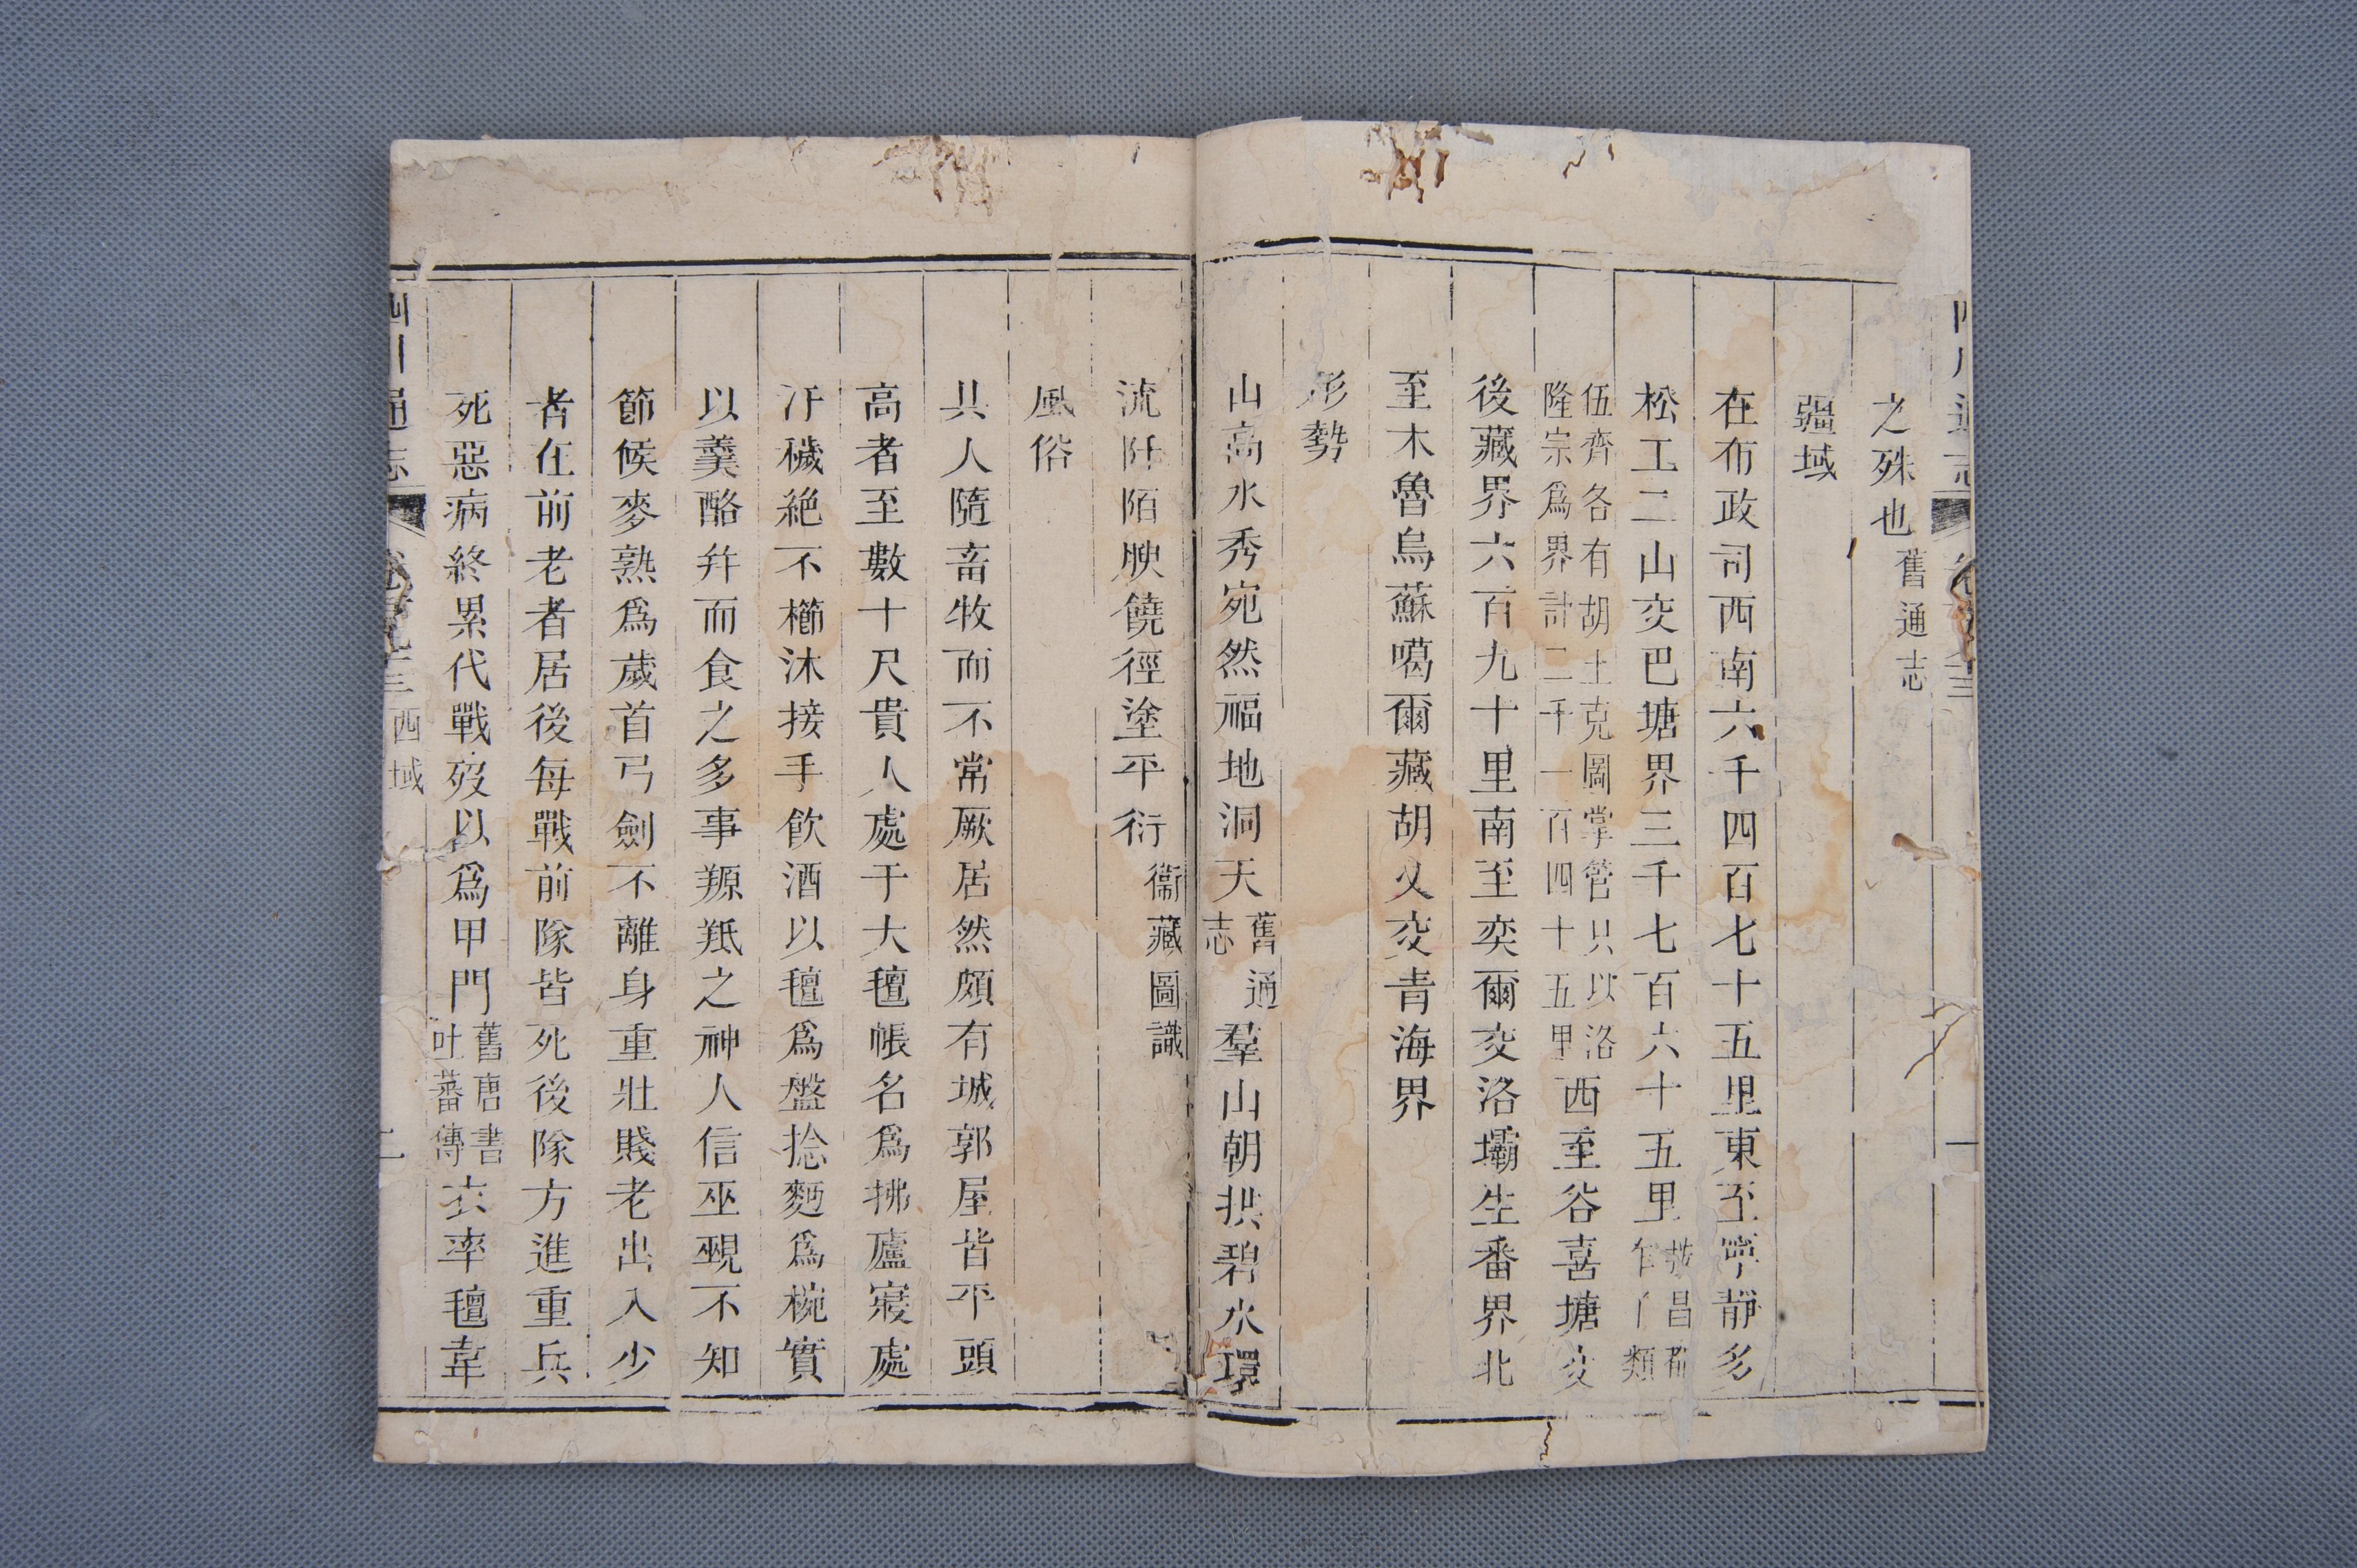 之殊也舊通志
疆域
在布政司西南六千四百七十五里東至寧靜多
松工二山交巴塘界三千七百六十五里乍丫類
伍齊各有胡土克圖掌管只以洛
隆宗為界計二千一百四十五里西至谷喜塘交
後藏界六百九十里南至奕爾交洛壩生番界北
至木魯烏蘇噶爾藏胡乂交青海界
形勢
山高水秀宛然福地洞天舊通志羣山朝拱碧水環
流阡陌腴饒徑塗平衍衞藏圖識
風俗
其人隨畜牧而不常厥居然頗有城郭屋皆平頭
高者至數十尺貴人處于大氊帳名為拂廬寢處
汙穢絶不櫛沐接手飲酒以氊為盤捻麪為椀實
以羹酪并而食之多事羱羝之神人信巫覡不知
節候麥熟為歲首弓劍不離身重壯賤老出入少
者在前老者居後每戰前隊皆死後隊方進重兵
死惡病終累代戰歿以為甲門舊唐書吐蕃傳衣率氊韋
四川通志 西域 二